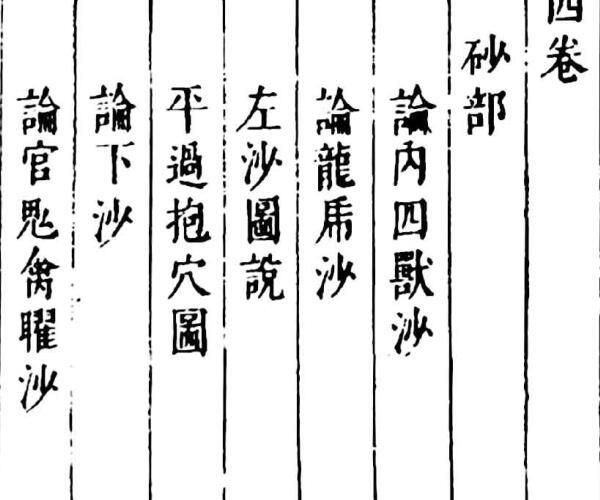 四卷
砂部
論內四獸沙
論龍虎沙
左沙圖說
平過抱穴圖
論下沙
論官鬼禽曜沙